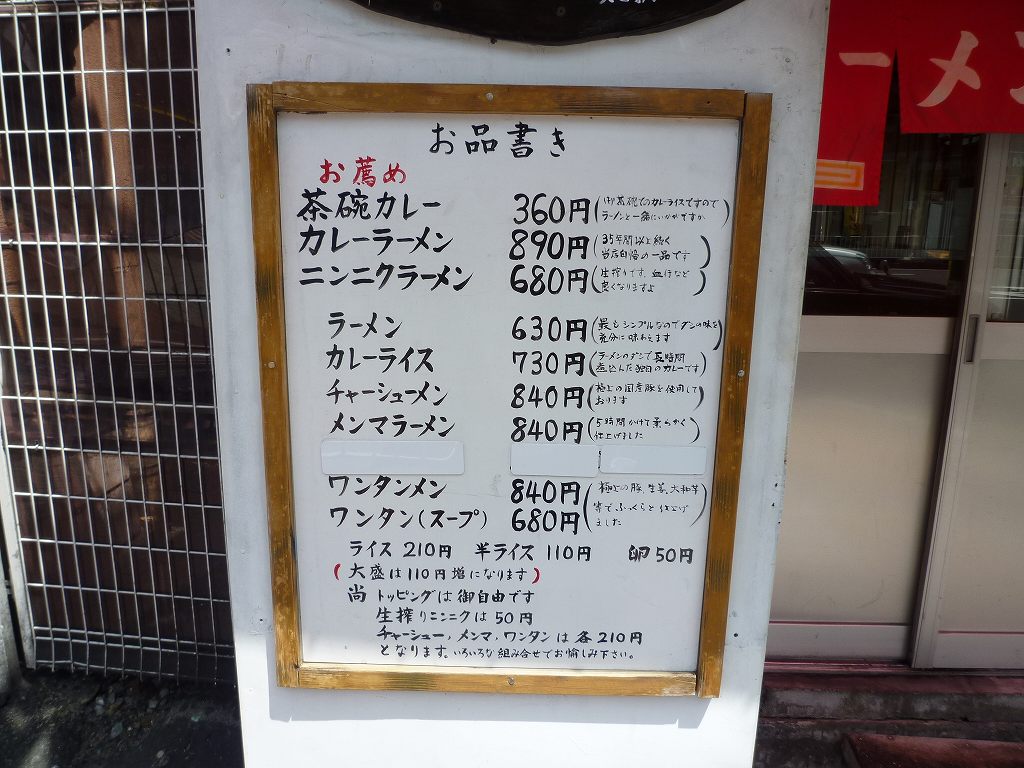 お品書き
お薦め
茶碗カレー 360円 (御茶碗でのカレーライスですので
ラーメンと一緒にいかがですか)
カレーラーメン 890円 (35年間以上続く
当店自慢の一品です)
ニンニクラーメン 680円 (生搾りです、血行など
良くなりますよ)
ラーメン 630円 (最もシンプルなのでダシの味を
充分に味わえます)
カレーライス 730円 (ラーメンのダシで長時間
煮込んだ独自のカレーです)
チャーシューメン 840円 (極上の国産豚を使用して
おります)
メンマラーメン 840円 (5時間かけて柔らかく
仕上げました)
ワンタンメン 840円 (極上の豚、生姜、大和芋
ワンタン(スープ) 680円 等でふっくらと仕上げ
ました)
ライス 210円 半ライス 110円 卵 50円
(大盛は110円増になります)
尚トッピングは御自由です
生搾りニンニクは50円
チャーシュー,メンマ,ワンタンは各210円
となります。いろいろな組み合せでお愉しみ下さい。
ーメン